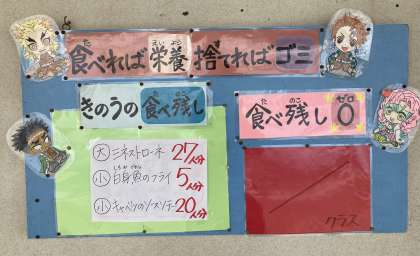 食べれば栄養 捨てればゴミ
きのうの食べ残し
大 ミネストローネ 27人分
小 白身魚のフライ 5人分
小 キャベツのソースソテー 20人分
食べ残し0
クラス